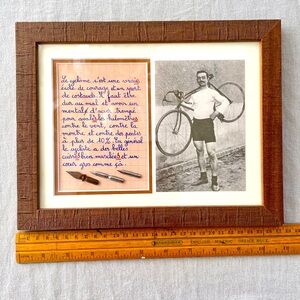 Le cyclisme c'est une vraie
école de courage et un sport
de costauds. Il faut être
dur au mal et avoir un
mental d'acier trempé
pour avaler les kilomètres
contre le vent, contre la
montre et contre des pentes
à plus de 10%. En général
le cycliste a des belles
cuisses bien musclées et un
cœur gros comme ça.